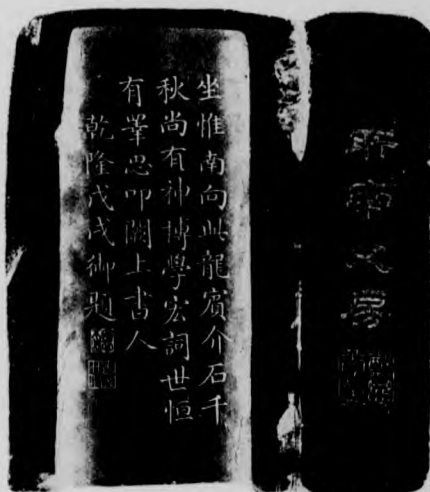 所南文房
坐惟南向此龍賓介石千
秋尚有神博學宏詞世恒
有睪思叩闕上書人
乾隆戊戌御題